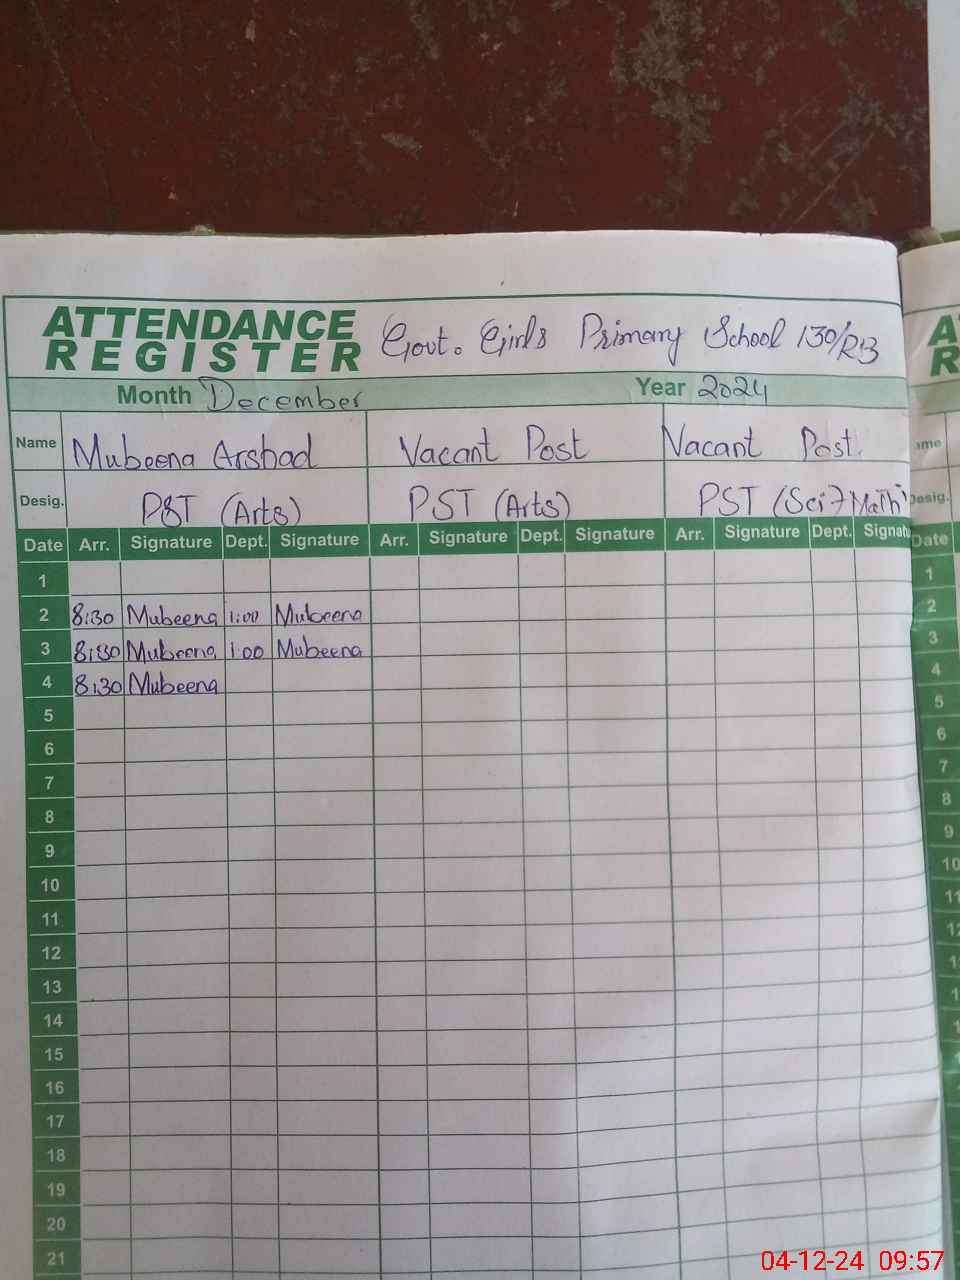 ATTENDANCE REGISTER Govt. Girls Primary School 130/RB
Month December Year 2024
Name Mubeena Arshad Vacant Post Vacant Post
Desig. PST (Arts) PST (Arts) PST (Sci-Math)
Date Arr. Signature Dept. Signature Arr. Signature Dept. Signature Arr. Signature Dept.
1
2 8:30 Mubeena 1:00 Mubeena
3 8:30 Mubeena 1:00 Mubeena
4 8:30 Mubeena
5
6
7
8
9
10
11
12
13
14
15
16
17
18
19
20
21
Desig.
Date
1
2
3
4
5
6
7
8
9
10
04-12-24 09:57